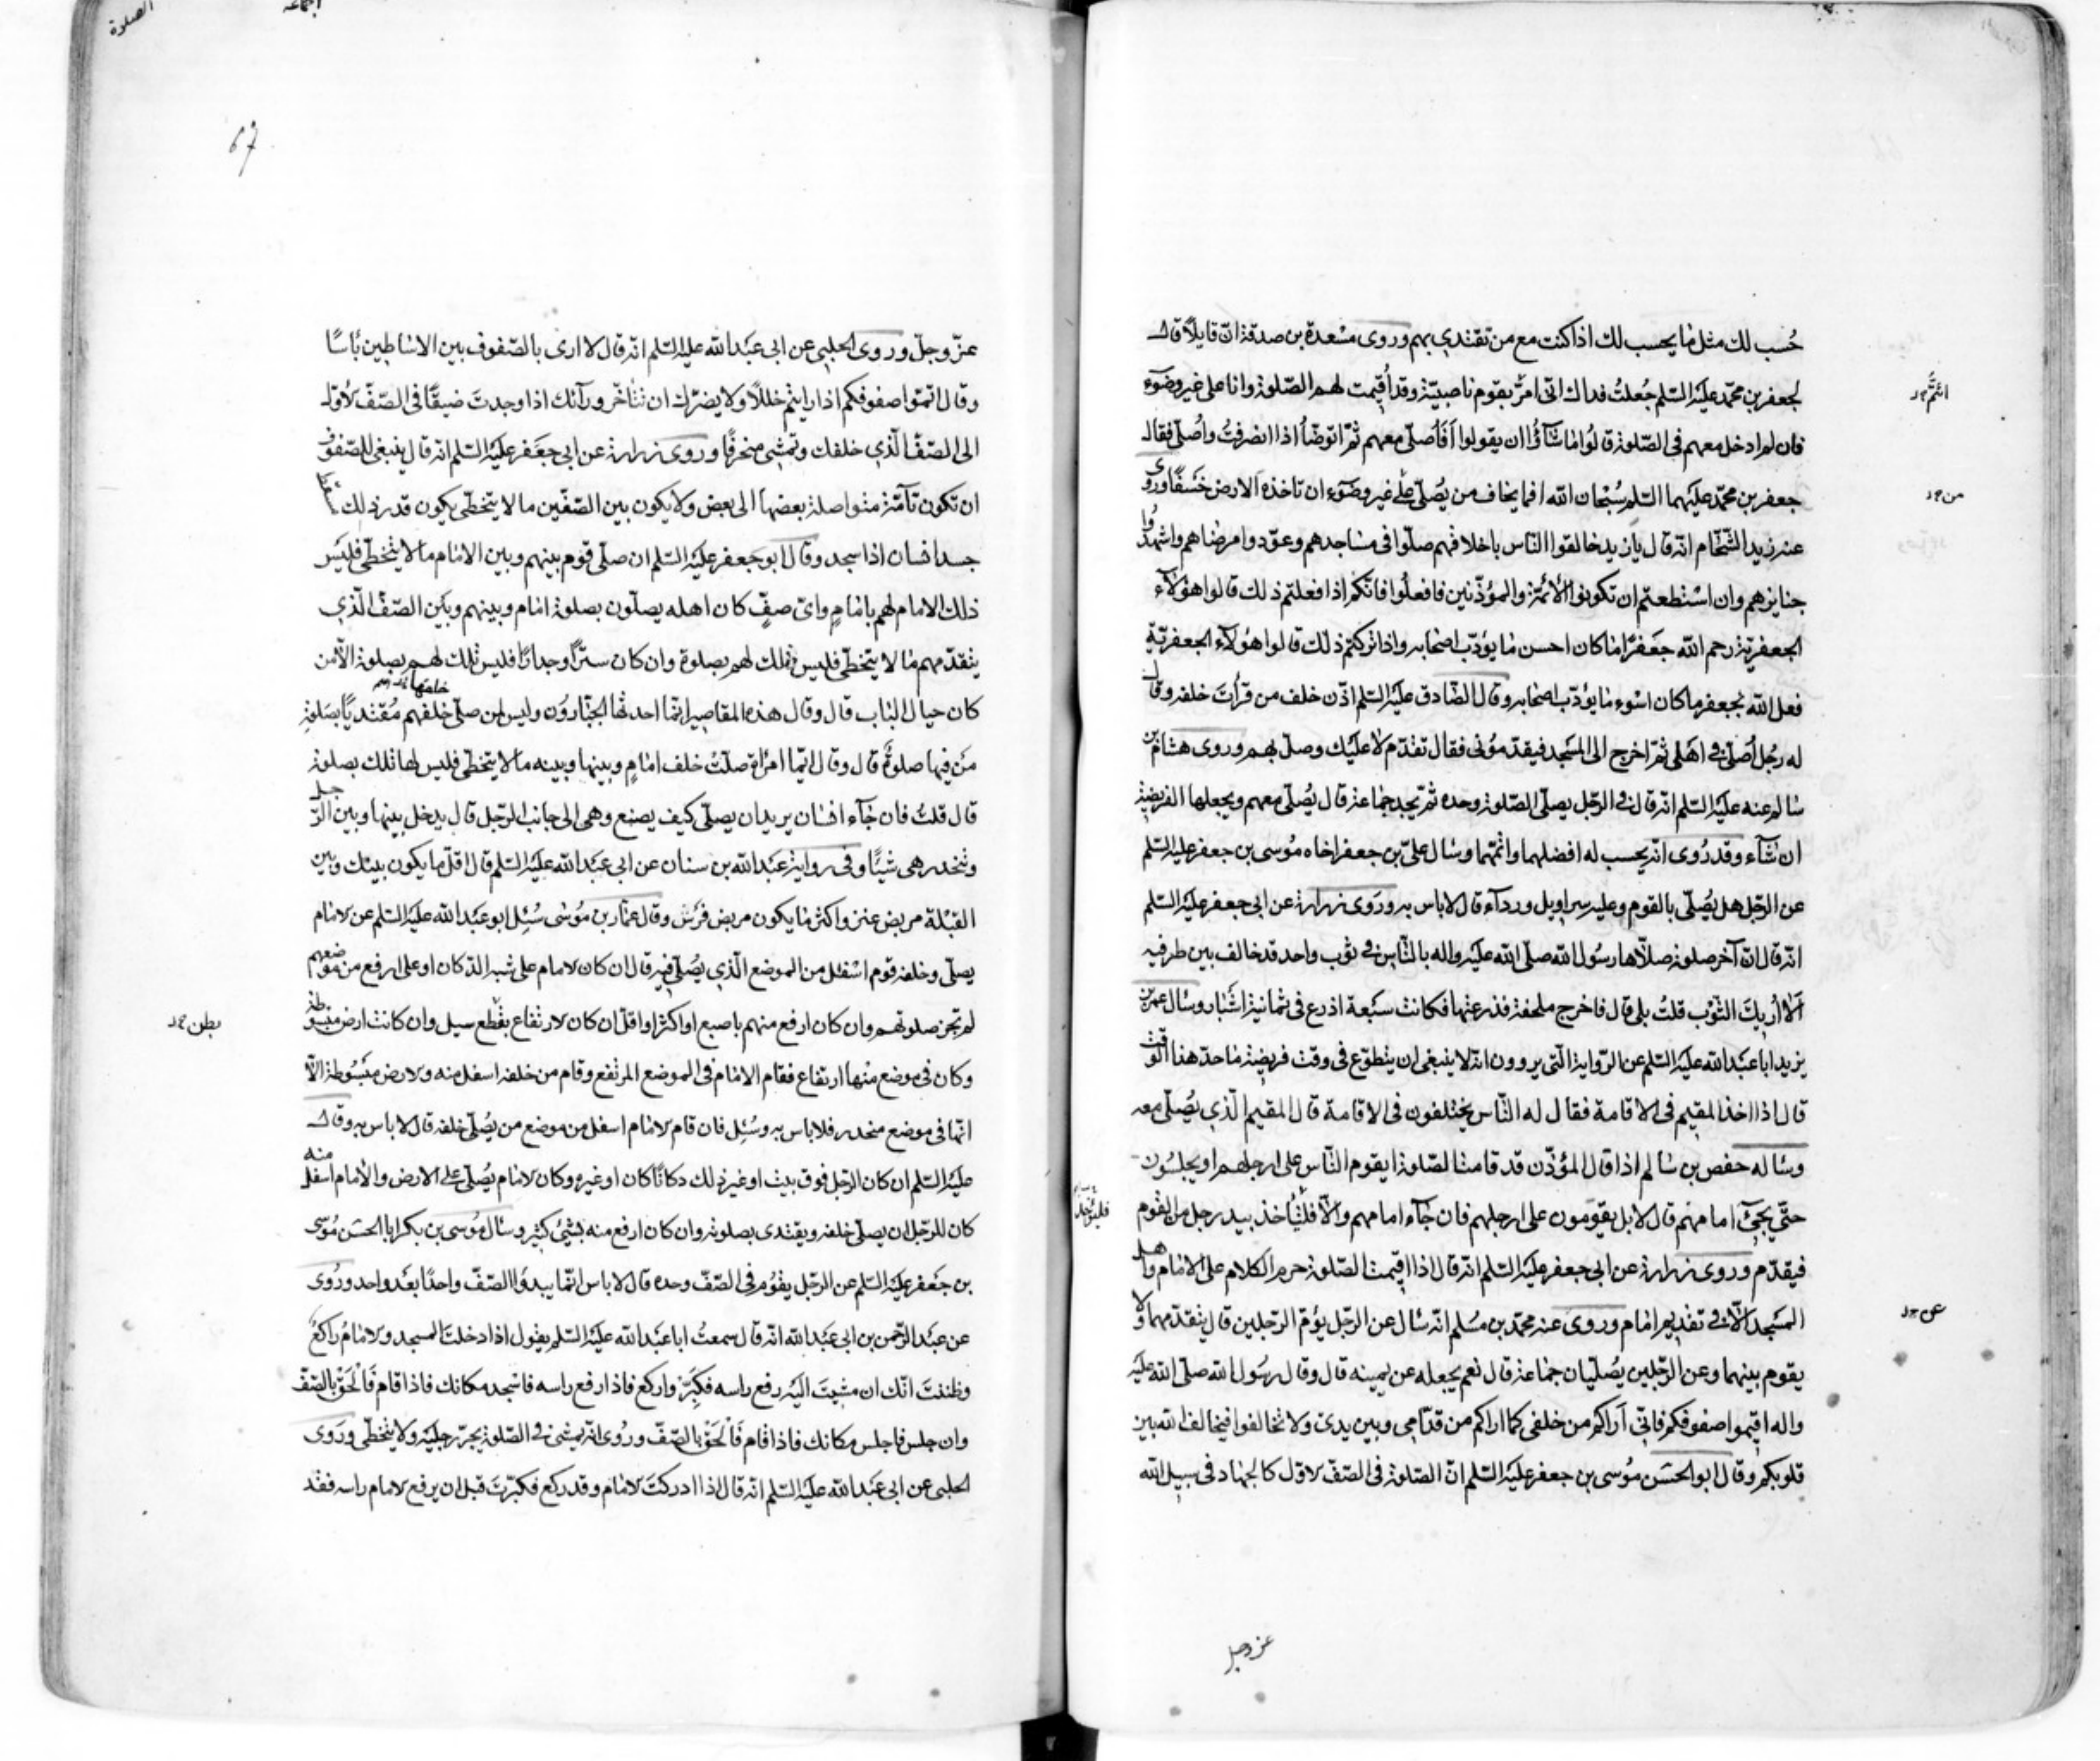 حُسب لك مثل ما يحسب لك اذا كنت مع من تقتدي بهم وروى مسعدة بن صدقة انّ قايلاً قال
لجعفر بن محمّد عليه السّلم جُعلتُ فداك انّى امرّ بقوم ناصبيّة وقد اُقيمت لهم الصّلوة وانا على غير وضوٓء
فان لم ادخل معهم فى الصّلوة قالوا ما شآؤا ان يقولوا اَفَاُصلّى معهم ثمّ اتوضّأ اذا انصرفتُ واُصلّى فقال
جعفر بن محمّد عليهما السّلم سُبْحان الله افما يخاف من يُصلّى على غير وضوٓء ان تاخذه الارض خَسفًا وروى
عنه زيد الشّحّام انّه قال يا زيد خالقوا النّاس باخلاقهم صلّوا فى مساجدهم وعودوا مرضاهم واشهدوا
جنايزهم وان استطعتم ان تكونوا الأئمّة والمؤذّنين فافعلُوا فانّكم اذا فعلتم ذلك قالوا هؤلآء
الجعفريّة رحم الله جَعفرًا ما كان احسن ما يؤدّب اصحابه واذا تركتم ذلك قالوا هؤلآء الجعفريّة
فعل الله بجعفر ما كان اسْوء ما يؤدّب اصحابه وقال الصّادق عليه السّلم اذّن خلف من قرأتَ خلفه وقال
له رجُل اُصلّى فى اهلى ثمّ اخرج الى المسجد فيقدّمونى فقال تقدّم لا عليك وصلّ بهم وروى هشام بن
سالم عنه عليه السّلم انّه قال فى الرّجل يصلّى الصّلوة وحده ثمّ يجد جماعة قال يُصلّى معهم ويجعلها الفريضة
ان شآء وقد رُوى انّه يحسب له افضلهما واتمّهما وسال علىّ بن جعفر اخاه مُوسى بن جعفر عليه السّلم
عن الرّجل هل يُصلّى بالقوم وعليه سراويل وردآء قال لا باس به ورَوى زرارة عن ابى جعفر عليه السّلم
انّه قال انّ آخر صلوة صلّاها رسُول الله صلّى الله عليه واله بالنّاس فى ثوب واحد قد خالف بين طرفيه
اَلا اُريك الثّوب قلتُ بلى قال فاخرج ملحفة فذرعتها فكانت سَبعة اذرع فى ثمانية اشبار وسال عمر بن
يزيد ابا عبد الله عليه السّلم عن الرّواية الّتى يروون انّه لا ينبغى ان يتطوّع فى وقت فريضة ما حدّ هذا الوقت
قال اذا اخذ المقيم فى الاقامة فقال له النّاس يختلفون فى الاقامة قال المقيم الّذي يُصلّى معه
وساله حفص بن سالم اذا قال المؤذّن قد قامت الصّلوة ايقوم النّاس على ارجلهم او يجلسُون
حتّى يجئ امامهم قال لا بل يقومون على ارجلهم فان جآء امامهم والّا فلياخذ بيد رجل من القوم
فيقدّم وروى زرارة عن ابى جعفر عليه السّلم انّه قال اذا اقيمت الصّلوة حرم الكلام على الامام واهل
المسجد الّا فى تقديم امام وروى عنه محمّد بن مُسلم انّه سال عن الرّجل يؤمّ الرّجلين قال يتقدّمهما ولا
يقوم بينهما وعن الرّجلين يُصلّيان جماعة قال نعم يجعله عن يمينه قال وقال رسُول الله صلّى الله عليه
واله اقيموا صفوفكم فانّى اَراكم من خلفى كما اراكم من قدّامى وبين يدىّ ولا تخالفوا فيخالف الله بين
قلوبكم وقال ابو الحسَن مُوسى بن جعفر عليه السّلم انّ الصّلوة فى الصّفّ الاوّل كالجهاد فى سبيل الله
عز وجل
من
عن
الصلوة
67
عزّ وجلّ وروى الحلبى عن ابى عبد الله عليه السّلم انّه قال لا ارى بالصّفوف بين الاساطين بأسًا
وقال اتمّوا صفوفكم اذا رايتم خللًا ولا يضرّك ان تتأخّر ورآئك اذا وجدتَ ضيقًا فى الصّفّ الاوّل
الى الصّفّ الّذي خلفك وتمشى منحرفًا وروى زرارة عن ابى جعفر عليه السّلم انّه قال ينبغى للصّفوف
ان تكون تآمّة متواصلة بعضها الى بعض ولا يكون بين الصّفّين ما لا يتخطّى يكون قدر ذلك مسقط
جسد انسان اذا سجد وقال ابو جعفر عليه السّلم ان صلّى قوم بينهم وبين الامام ما لا يتخطّى فليس
ذلك الامام لهم بامامٍ واىّ صفٍّ كان اهله يصلّون بصلوة امام وبينهم وبَين الصّفّ الّذي
يتقدّمهم ما لا يتخطّى فليس تلك لهم بصلوة وان كان سترًا او جدارًا فليس تلك لهم بصلوة الّا من
كان حيال الباب قال وقال هذه المقاصير انّما احدثها الجبّارون وليس لمن صلّى خلفهم مُقتديًا بصَلوة
مَن فيها صلوة قال وقال ايّما امرأة صلّتْ خلف امامٍ وبينها وبينه ما لا يتخطّى فليس لها تلك بصلوة
قال قلتُ فان جآء انسان يريد ان يصلّى كيف يصنع وهى الى جانب الرّجل قال يدخل بينها وبين الرّجل
وتنحدر هى شيئًا وفى رواية عبَد الله بن سنان عن ابى عبَد الله عليه السّلم قال اقلّ ما يكون بينك وبين
القبْلة مربض عنز واكثر ما يكون مربض فرَس وقال عمّار بن مُوسى سُئِل ابو عبَد الله عليه السّلم عن الامام
يصلّى وخلفه قوم اسْفل من الموضع الّذي يُصلّى فيه قال ان كان الامام على شبه الدّكان او على ارفع من موضعهم
لم تجز صلوتهم وان كان ارفع منهم باصبع او اكثر او اقلّ ان كان الارتفاع بقطع سيل وان كانت ارض مبسوطة
وكان فى موضع منها ارتفاع فقام الامام فى الموضع المرتفع وقام من خلفه اسفل منه والارض مبَسُوطة الّا
انّها فى موضع منحدر فلا باس به وسُئِل فان قام الامام اسفل من موضع من يُصلّى خلفه قال لا باس به وقال
عليه السّلم ان كان الرّجل فوق بيت او غير ذلك دكانًا كان او غيره وكان الامام يُصلّى على الارض والامام اسفل منه
كان للرّجل ان يصلّى خلفه ويقتدى بصلوته وان كان ارفع منه بشئ كثير وسال مُوسى بن بكر ابا الحسَن مُوسى
بن جَعفر عليه السّلم عن الرّجل يقُوم فى الصّفّ وحده قال لا باس انّما يبدؤا الصّفّ واحدًا بعَد واحد ورُوى
عن عبَد الرّحمن بن ابى عبَد الله انّه قال سمعتُ ابا عبَد الله عليه السّلم يقول اذا دخلتَ المسجد والامامُ راكعٌ
وظننتَ انّك ان مشيتَ اليه رفع راسه فكبِّر واركع فاذا رفع راسه فاسجد مكانك فاذا قام فَالْحَقْ بالصّفّ
وان جلس فاجلس مكانك فاذا قام فَالْحَقْ بالصّفّ وروُى انّه يمشى فى الصّلوة يجرّ رجليه ولا يتخطّى ورَوى
الحلبى عن ابى عبَد الله عليه السّلم انّه قال اذا ادركتَ الامام وقد ركع فكبّرتَ قبل ان يرفع الامام راسه فقد
بطن